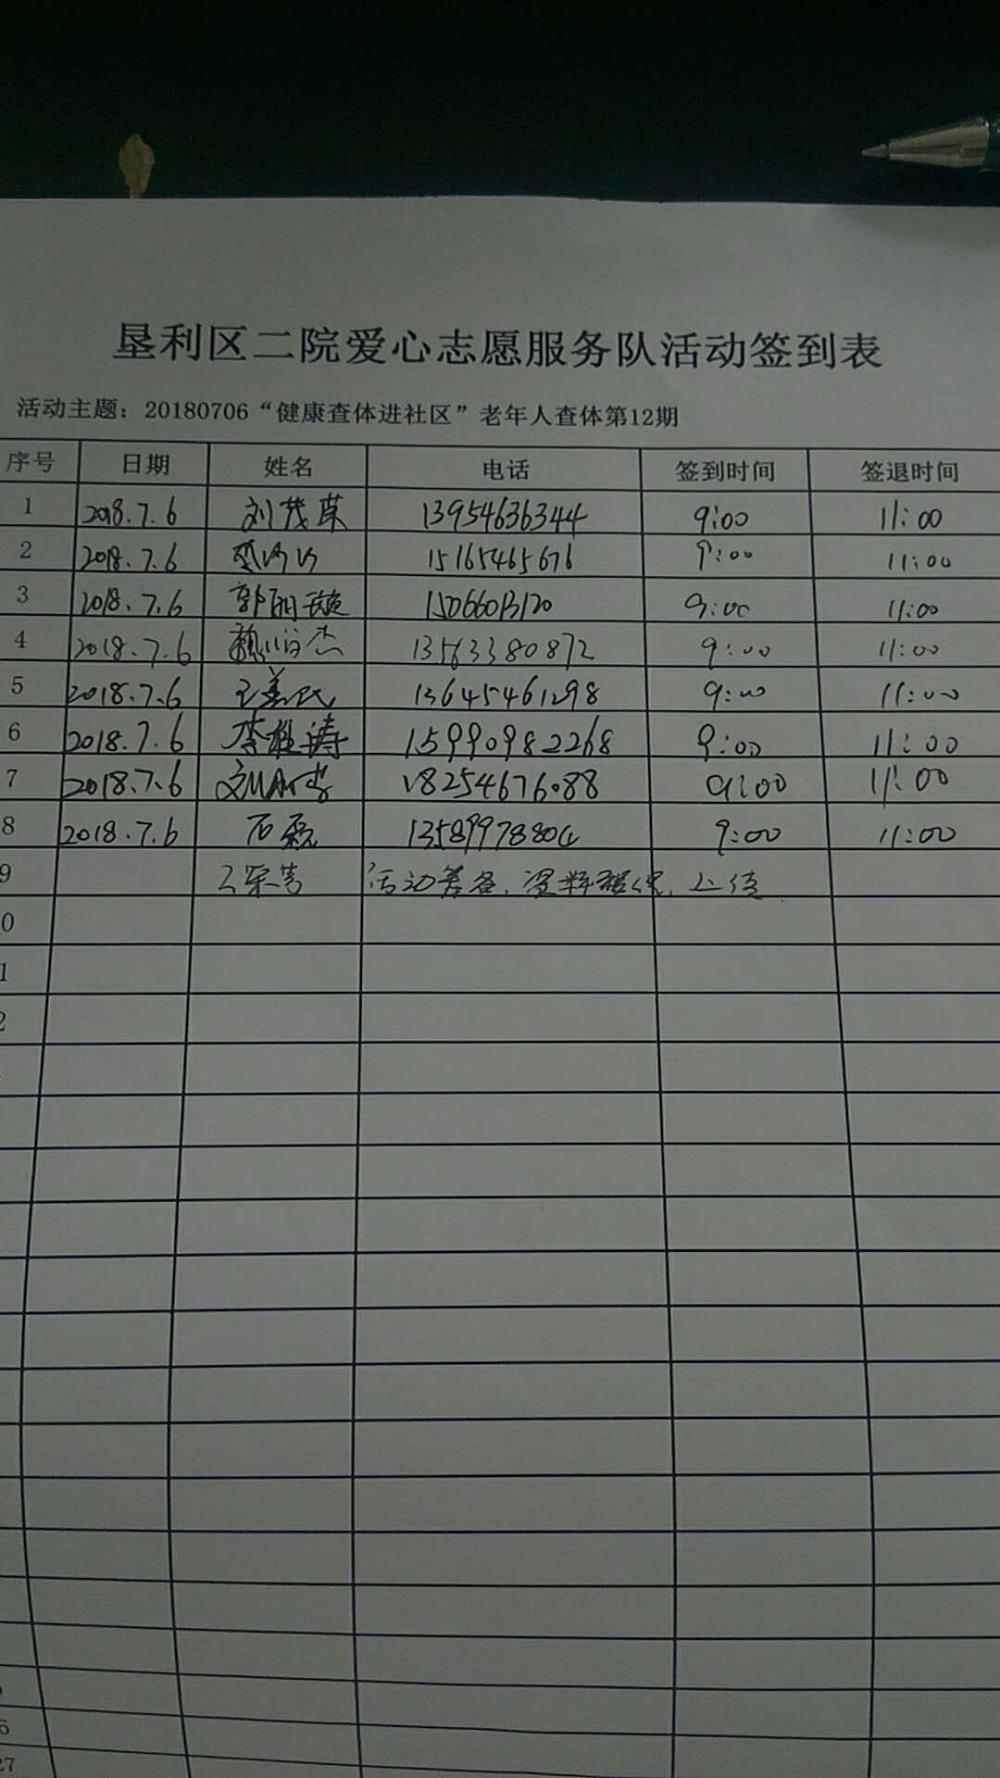 垦利区二院爱心志愿服务队活动签到表
活动主题：20180706“健康查体进社区”老年人查体第12期
序号 日期 姓名 电话 签到时间 签退时间
1 2018.7.6 刘茂草 13954636344 9:00 11:00
2 2018.7.6 15165465676 9:00 11:00
3 2018.7.6 郭丽璇 15066013120 9:00 11:00
4 2018.7.6 13563380872 9:00 11:00
5 2018.7.6 王美民 13645461298 9:00 11:00
6 2018.7.6 李胜涛 15990982268 9:00 11:00
7 2018.7.6 18254676088 9:00 11:00
8 2018.7.6 石磊 13589978804 9:00 11:00
9 活动筹备，资料提供，上传
0
1
2
6
27